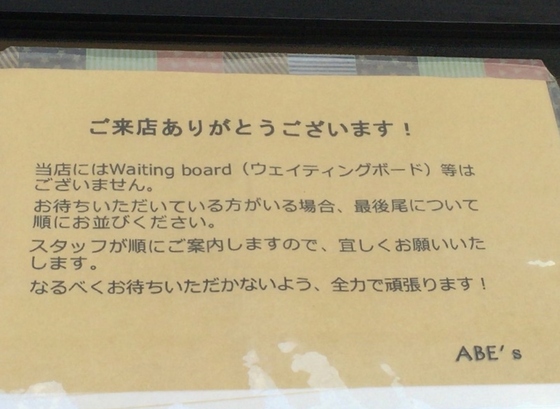 ご来店ありがとうございます！
当店にはWaiting board（ウェイティングボード）等は
ございません。
お待ちいただいている方がいる場合、最後尾について
順にお並びください。
スタッフが順にご案内しますので、宜しくお願いいた
します。
なるべくお待ちいただかないよう、全力で頑張ります！
ABE's